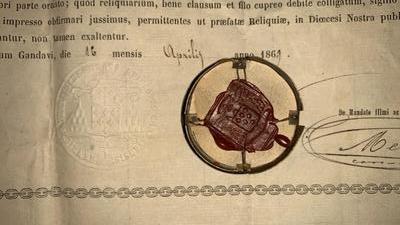 ori parte ornato; quod reliquiarium, bene clausum et filo cupreo debite colligatum, sigillo
impresso obfirmari jussimus, permittentes ut præfatæ Reliquiæ, in Diœcesi Nostra publ
antur, non tamen exaltentur.
um Gandavi, die 16 mensis Aprilis anno 1861
De Mandato Illmi ac